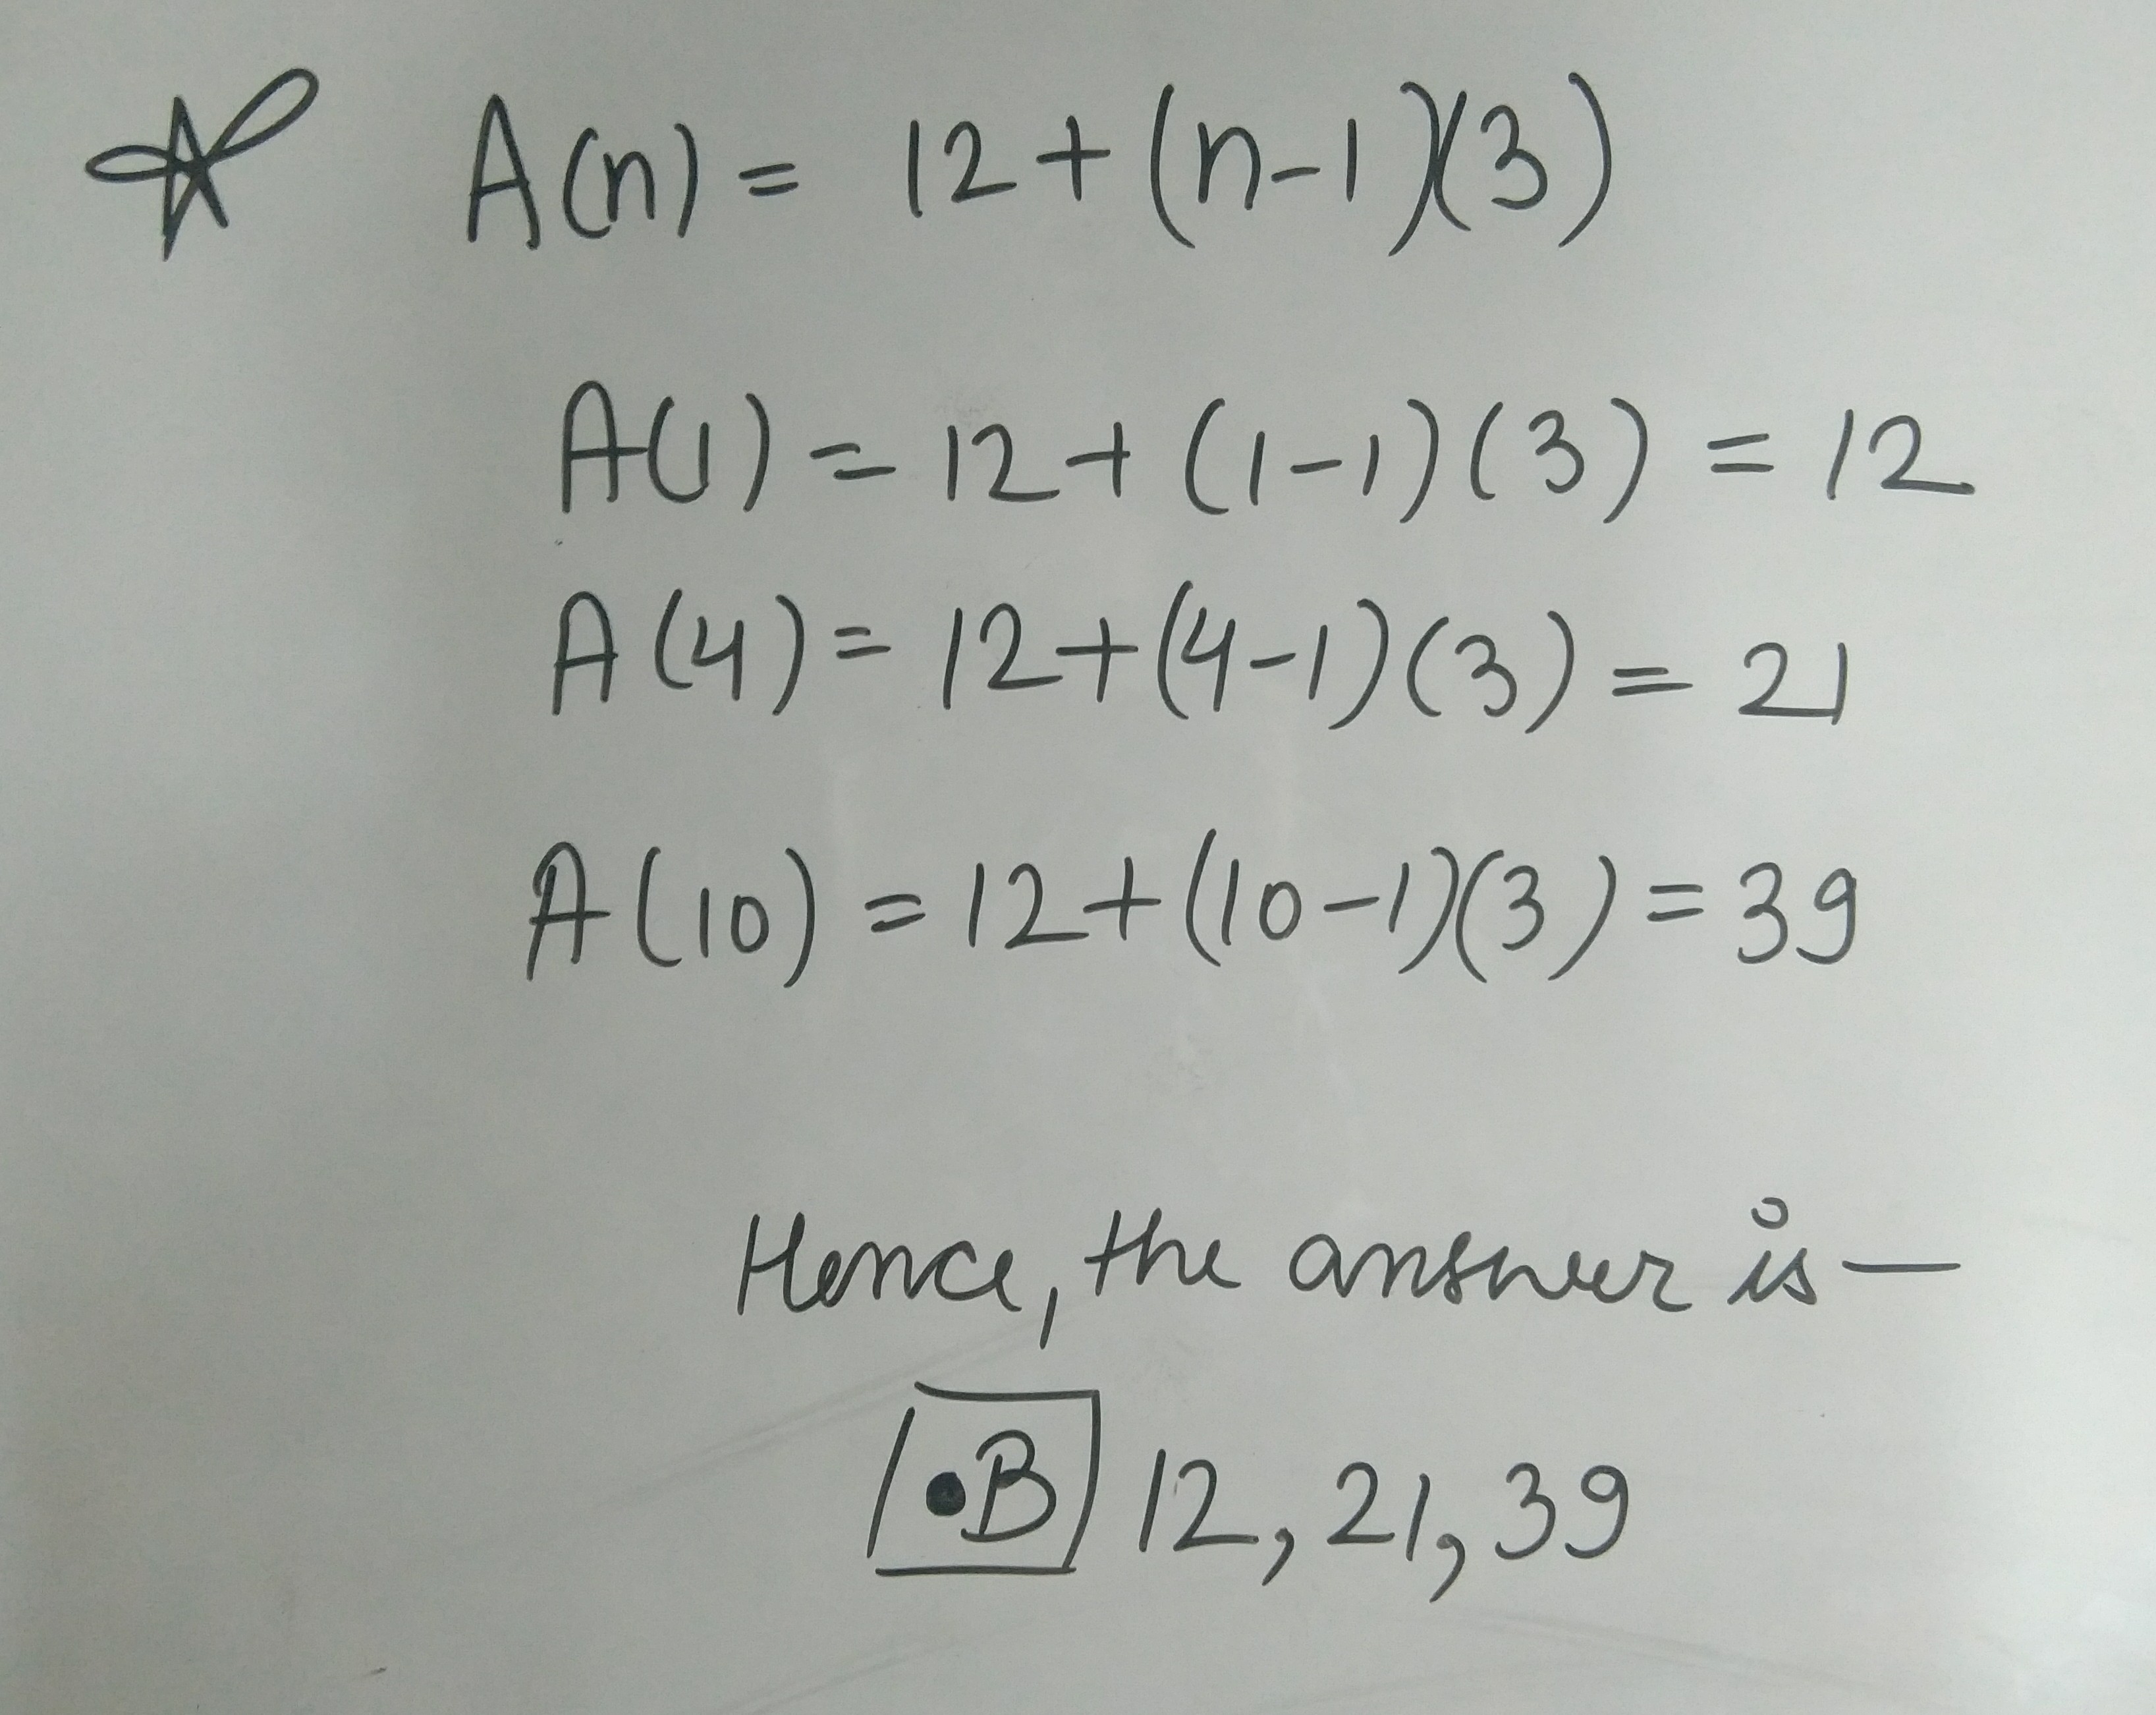 A(n) = 12 + (n-1)(3)
A(1) = 12 + (1-1)(3) = 12
A(4) = 12 + (4-1)(3) = 21
A(10) = 12 + (10-1)(3) = 39
Hence, the answer is —
•B 12, 21, 39